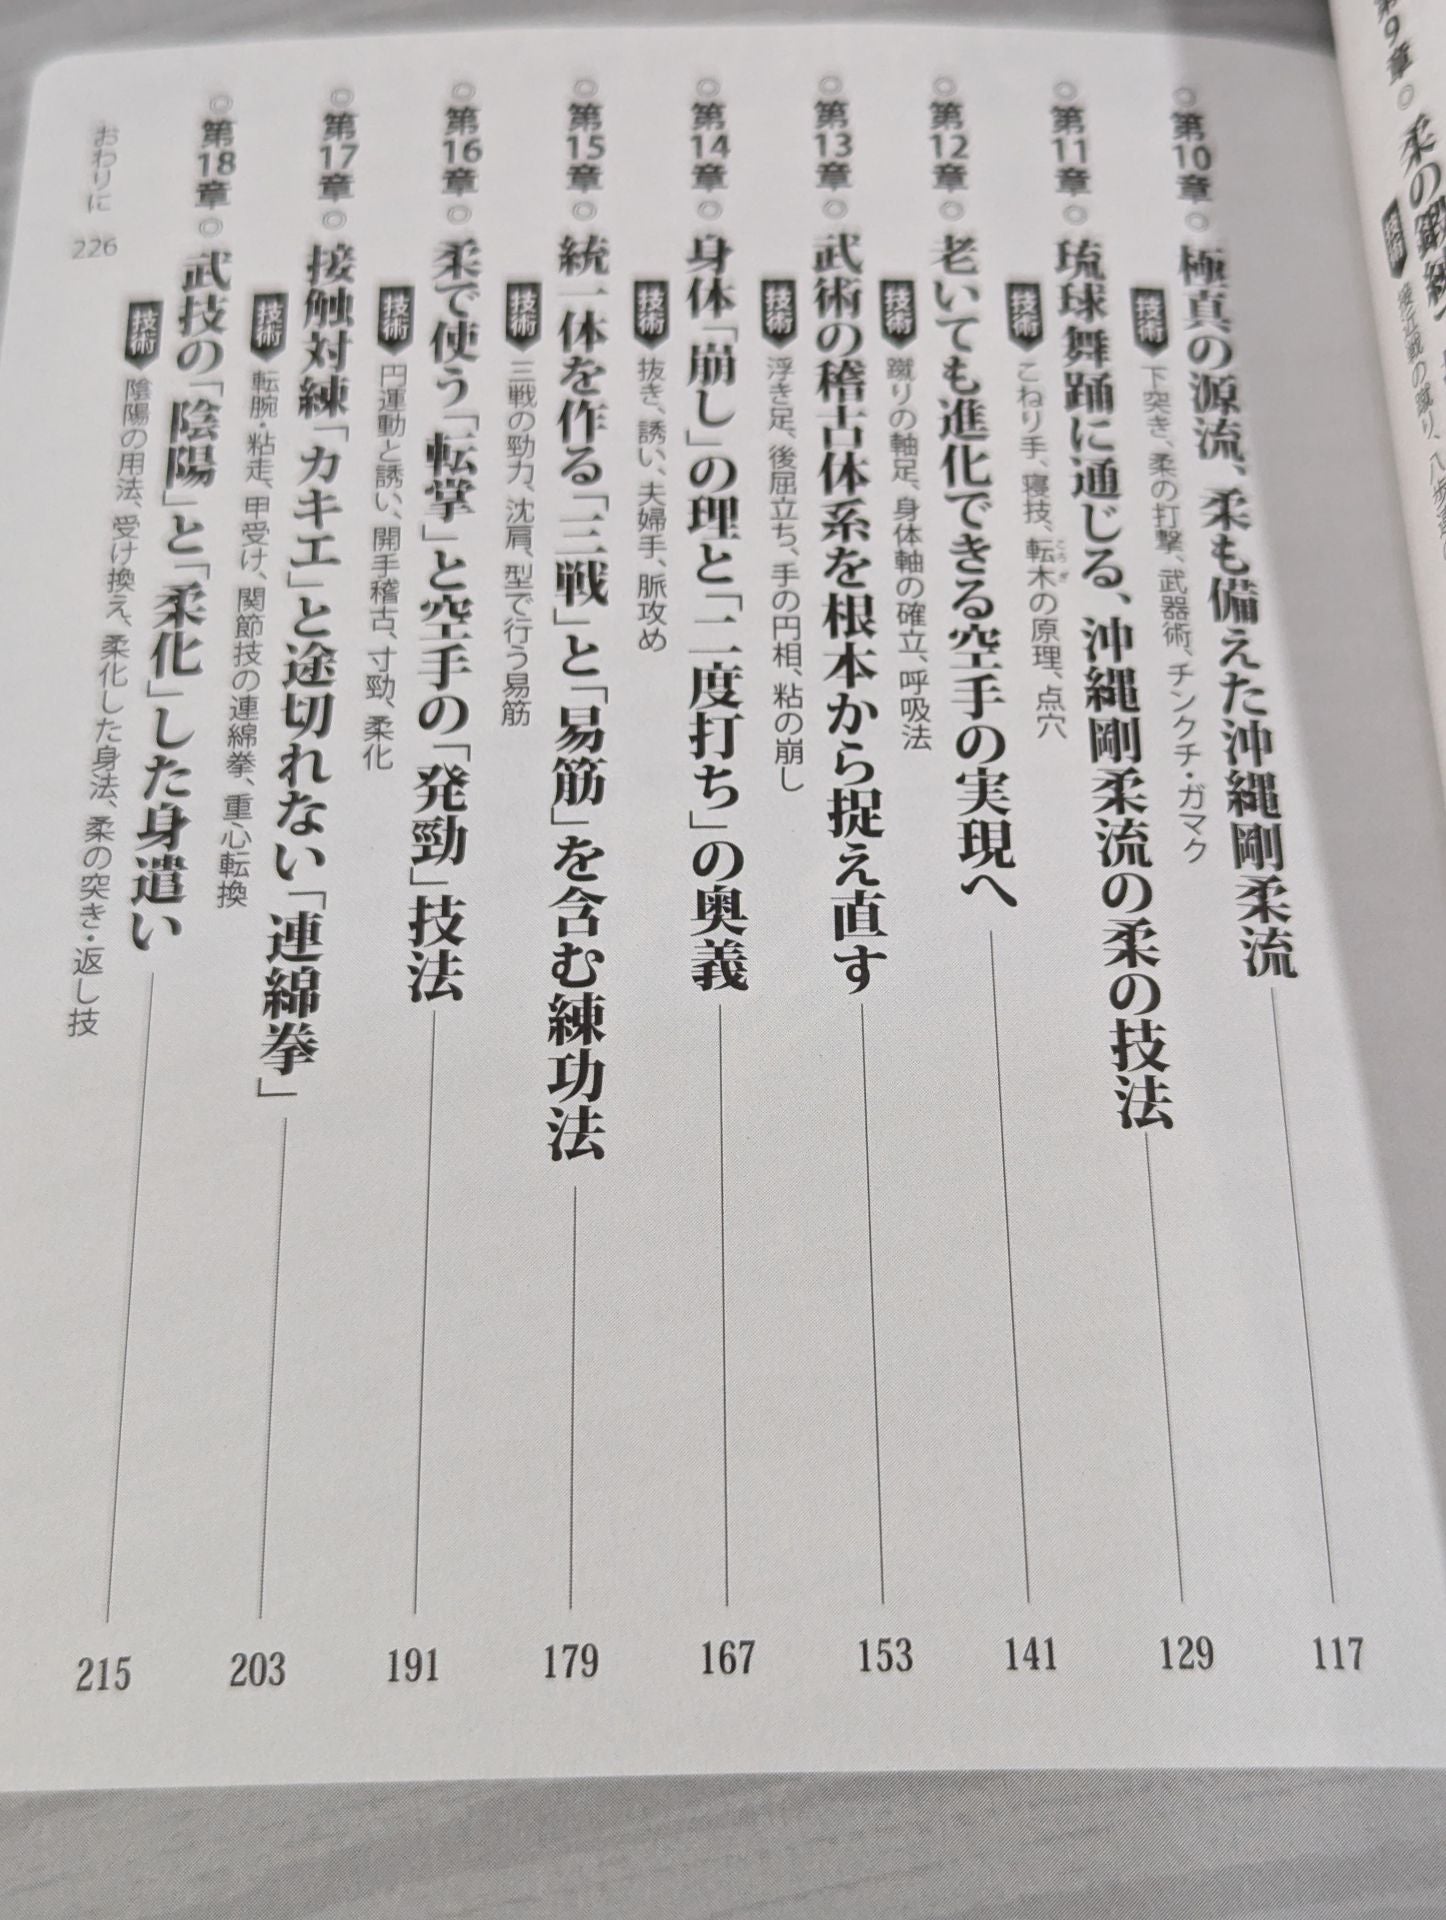 第9章◎柔の鍛練
技術 接近戦の蹴り、八歩
◎第10章◎極真の源流、柔も備えた沖縄剛柔流 117
技術 下突き、柔の打撃、武器術、チンクチ・ガマク
◎第11章◎琉球舞踊に通じる、沖縄剛柔流の柔の技法 129
技術 こねり手、寝技、転木の原理、点穴
こうぎ
◎第12章◎老いても進化できる空手の実現へ 141
技術 蹴りの軸足、身体軸の確立、呼吸法
◎第13章◎武術の稽古体系を根本から捉え直す 153
技術 浮き足、後屈立ち、手の円相、粘の崩し
◎第14章◎身体「崩し」の理と「二度打ち」の奥義 167
技術 抜き、誘い、夫婦手、脈攻め
◎第15章◎統一体を作る「三戦」と「易筋」を含む練功法 179
技術 三戦の勁力、沈肩、型で行う易筋
◎第16章◎柔で使う「転掌」と空手の「発勁」技法 191
技術 円運動と誘い、開手稽古、寸勁、柔化
◎第17章◎接触対練「カキエ」と途切れない「連綿拳」 203
技術 転腕・粘走、甲受け、関節技の連綿拳、重心転換
◎第18章◎武技の「陰陽」と「柔化」した身遣い 215
技術 陰陽の用法、受け換え、柔化した身法、柔の突き・返し技
おわりに 226